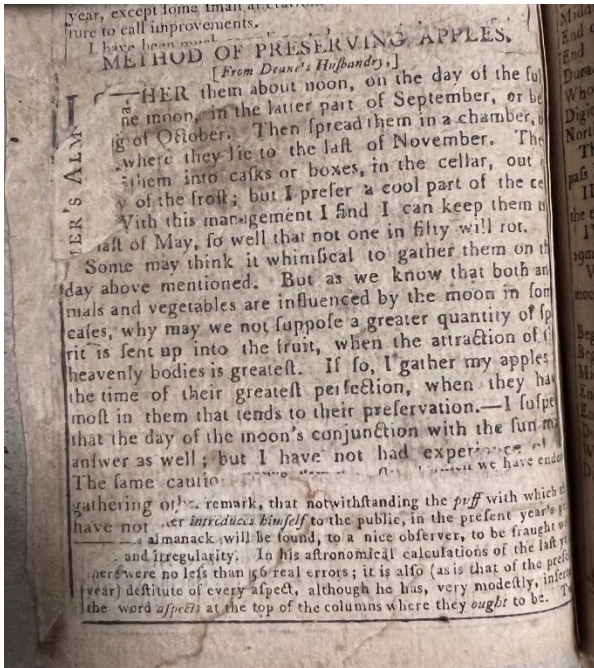 year, except some small
ture to call improvements.
I have been much
METHOD OF PRESERVING APPLES.
[From Deane's Husbandry,]
HER them about noon, on the day of the ful
ne moon, in the latter part of September, or be
g of October. Then spread them in a chamber,
where they lie to the last of November. The
them into casks or boxes, in the cellar, out
y of the frost; but I prefer a cool part of the ce
With this management I find I can keep them
last of May, so well that not one in fifty will rot.
Some may think it whimsical to gather them on th
day above mentioned. But as we know that both an
mals and vegetables are influenced by the moon in som
cases, why may we not suppose a greater quantity of sp
rit is sent up into the fruit, when the attraction of
heavenly bodies is greatest. If so, I gather my apples
the time of their greatest perfection, when they hav
most in them that tends to their preservation.—I suspe
that the day of the moon's conjunction with the sun
answer as well; but I have not had experience
The same cautio
we have
gathering
remark, that notwithstanding the puff with which
have not
introduces himself to the public, in the present year's
almanack will be found, to a nice observer, to be fraught
and irregularity. In his astronomical calculations of the last
there were no less than 56 real errors; it is also (as is that of the prese
year) destitute of every aspect, although he has, very modestly, inserte
the word aspects at the top of the columns where they ought to be.
ER'S ALM